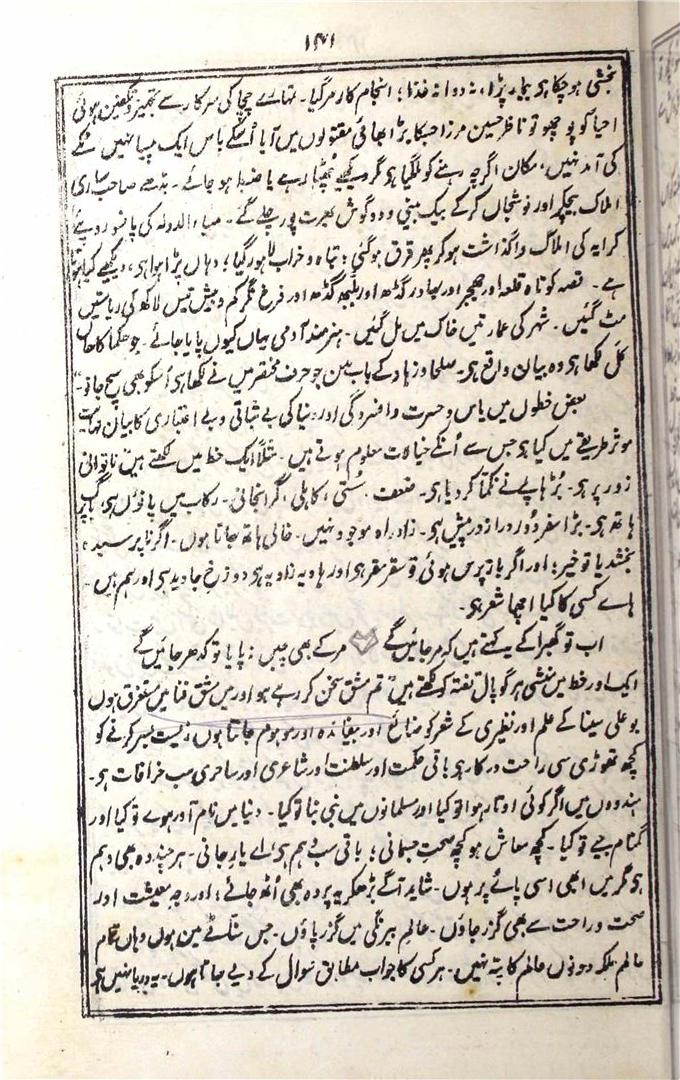 ۱۴۱
بخشی ہو چکا ہی بیمار پڑا، نہ دوا نہ غذا؛ انجام کار مر گیا۔ تمہارے چچا کی سرکار سے تجہیز و تکفین ہوئی
احیا کو پوچھو تو ناظر حسین مرزا جسکا بڑا بھائی مقتولوں میں آیا اُسکے پاس ایک پیسا نہیں ٹکے
کی آمد نہیں، مکان اگرچہ رہنے کو ملگیا ہی مگر دیکھیے چھٹا رہے یا ضبط ہو جائے۔ بڈھے صاحب ساری
املاک بیچکر اور نوشجاں کرکے بیک بینی و دو گوش بھرت پور چلے گئے۔ ضیاء الدولہ کی پانسو روپئے
کرایہ کی املاک واگذاشت ہو کر پھر قرق ہو گئی؛ تباہ و خراب لاہور گیا؛ وہاں پڑا ہوا ہی، دیکھیے کیا ہوتا
ہے۔ قصہ کوتاہ قلعہ اور جھجر اور بہادر گڈھ اور بلبھ گڈھ اور فرخ نگر کم و بیش تیس لاکھ کی ریاستیں
مٹ گئیں۔ شہر کی عمارتیں خاک میں مل گئیں۔ ہنرمند آدمی یہاں کیوں پایا جائے۔ جو حکما کا حال
کل لکھا ہی وہ بیان واقع ہی۔ صلحا و زہاد کے باب میں جو حرف مختصر میں نے لکھا ہی اُسکو بھی سچ جانو۔“
بعض خطوں میں یاس و حسرت و افسردگی اور دنیا کی بے ثباتی و بے اعتباری کا بیان نہایت
موثر طریقے میں کیا ہو جس سے اُنکے خیالات معلوم ہوتے ہیں۔ مثلاً ایک خط میں لکھتے ہیں ”ناتوانی
زور پر ہی۔ بُڑھاپے نے نکمّا کر دیا ہی۔ ضعف، سُستی، کاہلی، گرانجانی۔ رکاب میں پانوں ہی، باگ پر
ہاتھ ہی۔ بڑا سفر دُور دراز درپیش ہی۔ زاد راہ موجود نہیں۔ خالی ہاتھ جاتا ہوں۔ اگر ناپرسیدہ
بخشدیا تو خیر؛ اور اگر بازپرس ہوئی تو سقر مقر ہی اور ہاویہ زاویہ ہی دوزخ جاوید ہی اور ہم ہیں۔
ہاے کسی کا کیا اچھا شعر ہی۔
اب تو گھبرا کے یہ کہتے ہیں کہ مر جائیں گے مر کے بھی چین نہ پایا تو کدھر جائیں گے
ایک اور خط میں منشی ہر گوپال تفتہ کو لکھتے ہیں ”تم مشق سخن کر رہے ہو اور میں مشق فنا میں مستغرق ہوں
بو علی سینا کے علم اور نظیری کے شعر کو ضائع اور بیفائدہ اور موہوم جانتا ہوں زیست بسر کرنے کو
کچھ تھوڑی سی راحت درکار ہو باقی حکمت اور سلطنت اور شاعری اور ساحری سب خرافات ہو۔
ہندووں میں اگر کوئی اوتار ہوا تو کیا اور مسلمانوں میں نبی بنا تو کیا۔ دنیا میں نام آور ہوے تو کیا اور
گمنام جیے تو کیا۔ کچھ معاش ہو کچھ صحت جسمانی؛ باقی سب وہم ہی اے یار جانی۔ ہر چند وہ بھی وہم
ہی مگر میں ابھی اسی پائے پر ہوں۔ شاید آگے بڑھکر یہ پردہ بھی اُٹھ جائے؛ اور وجہ معیشت اور
صحت و راحت سے بھی گزر جاؤں۔ عالم بیرنگی میں گزر پاؤں۔ جس سنّاٹے میں ہوں وہاں تمام
عالم بلکہ دونوں عالم کا پتہ نہیں۔ ہر کسی کا جواب مطابق سوال کے دیے جاتا ہوں۔ یہ دریا نہیں ہی